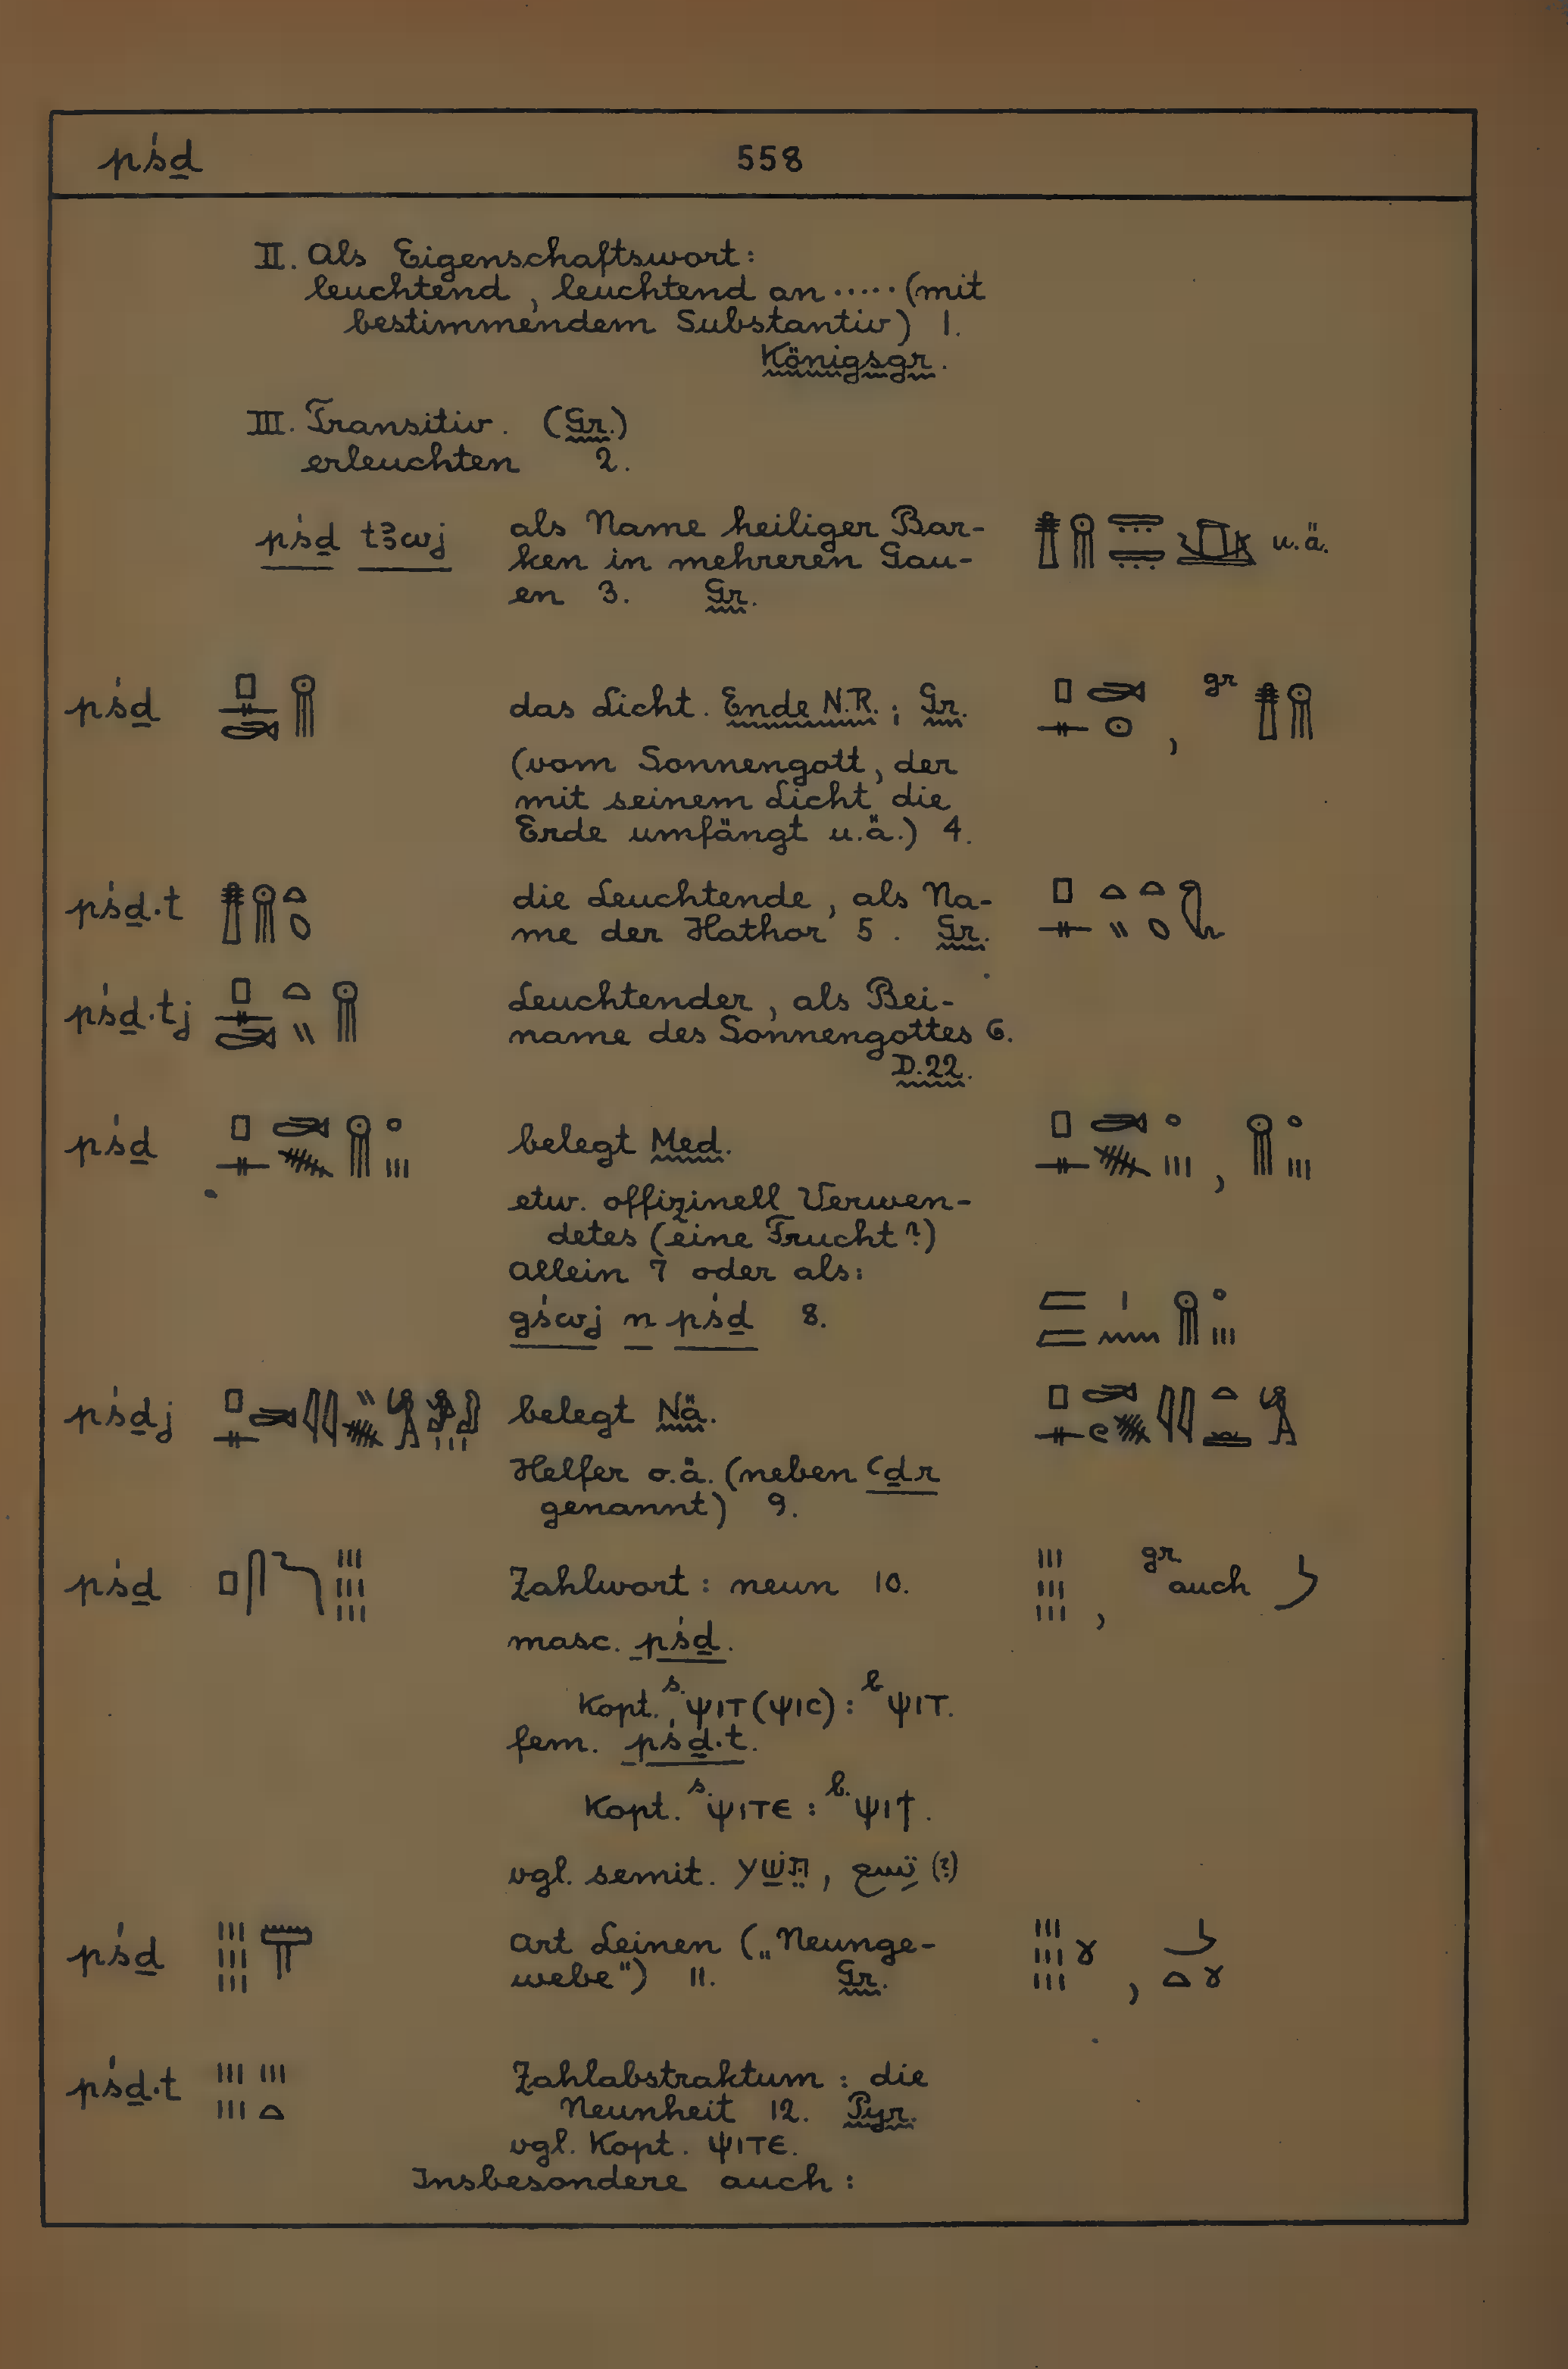 pśḏ 558
II. Als Eigenschaftswort:
leuchtend, leuchtend an ..... (mit
bestimmendem Substantiv) 1.
Königsgr.
III. Transitiv. (Gr.)
erleuchten 2.
pśḏ tꜣwj als Name heiliger Bar- u.ä.
ken in mehreren Gau-
en 3. Gr.
pśḏ das Licht. Ende N.R.; Gr. , gr
(vom Sonnengott, der
mit seinem Licht die
Erde umfängt u.ä.) 4.
pśḏ.t die Leuchtende, als Na-
me der Hathor 5. Gr.
pśḏ.tj Leuchtender, als Bei-
name des Sonnengottes 6.
D.22.
pśḏ belegt Med. ,
etw. offizinell Verwen-
detes (eine Frucht?)
Allein 7 oder als:
gśwj n pśḏ 8.
pśḏj belegt Nä.
Helfer o.ä. (neben ꜥḏr
genannt) 9.
pśḏ Zahlwort: neun 10. , gr auch
masc. pśḏ.
Kopt. s. ψιτ (ψιc) : b ψιτ.
fem. pśḏ.t.
Kopt. s. ψιτε : b. ψιϯ.
vgl. semit. תֵּשַׁע, تِسع (?)
pśḏ Art Leinen („Neunge- ,
webe") 11. Gr.
pśḏ.t Zahlabstraktum: die
Neunheit 12. Pyr.
vgl. Kopt. ψιτε.
Insbesondere auch: